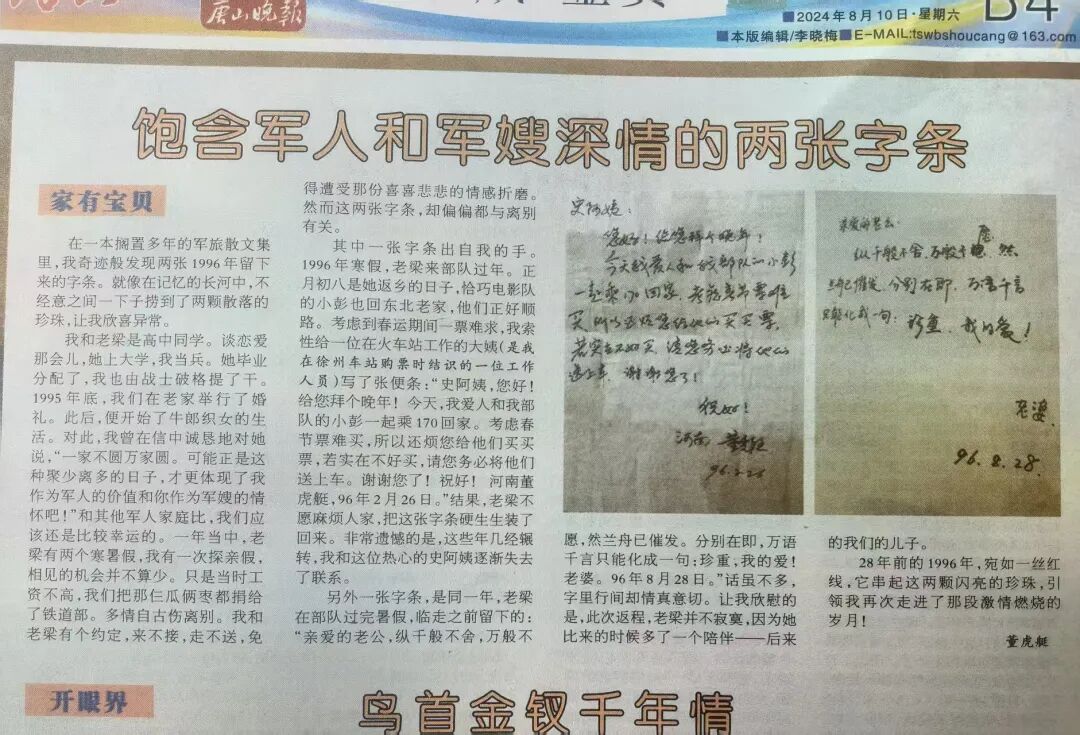 唐山晚报
■2024年8月10日·星期六 B4
■本版编辑/李晓梅■E-MAIL:tswbshoucang@163.com
饱含军人和军嫂深情的两张字条
家有宝贝
在一本搁置多年的军旅散文集
里,我奇迹般发现两张1996年留下
来的字条。就像在记忆的长河中,不
经意之间一下子捞到了两颗散落的
珍珠,让我欣喜异常。
我和老梁是高中同学。谈恋爱
那会儿,她上大学,我当兵。她毕业
分配了,我也由战士破格提了干。
1995年底,我们在老家举行了婚
礼。此后,便开始了牛郎织女的生
活。对此,我曾在信中诚恳地对她
说,“一家不圆万家圆。可能正是这
种聚少离多的日子,才更体现了我
作为军人的价值和你作为军嫂的情
怀吧!”和其他军人家庭比,我们应
该还是比较幸运的。一年当中,老
梁有两个寒暑假,我有一次探亲假,
相见的机会并不算少。只是当时工
资不高,我们把那仨瓜俩枣都捐给
了铁道部。多情自古伤离别。我和
老梁有个约定,来不接,走不送,免
得遭受那份喜喜悲悲的情感折磨。
然而这两张字条,却偏偏都与离别
有关。
其中一张字条出自我的手。
1996年寒假,老梁来部队过年。正
月初八是她返乡的日子,恰巧电影队
的小彭也回东北老家,他们正好顺
路。考虑到春运期间一票难求,我索
性给一位在火车站工作的大姨(是我
在徐州车站购票时结识的一位工作
人员)写了张便条:“史阿姨,您好!
给您拜个晚年!今天,我爱人和我部
队的小彭一起乘170回家。考虑春
节票难买,所以还烦您给他们买买
票,若实在不好买,请您务必将他们
送上车。谢谢您了!祝好!河南董
虎艇,96年2月26日。”结果,老梁不
愿麻烦人家,把这张字条硬生生装了
回来。非常遗憾的是,这些年几经辗
转,我和这位热心的史阿姨逐渐失去
了联系。
另外一张字条,是同一年,老梁
在部队过完暑假,临走之前留下的:
“亲爱的老公,纵千般不舍,万般不
史阿姨:
您好!给您拜个晚年!
今天我爱人和我部队的小彭
一起乘170回家。考虑春节票难
买,所以还烦您给他们买买票,
若实在不好买,请您务必将他们
送上车。谢谢您了!
祝好!
河南 董虎艇
亲爱的老公:
纵千般不舍,万般不愿,然
兰舟已催发,分别在即,万语千言
只能化成一句:珍重,我的爱!
老婆
96.8.28.
愿,然兰舟已催发。分别在即,万语
千言只能化成一句:珍重,我的爱!
老婆。96年8月28日。”话虽不多,
字里行间却情真意切。让我欣慰的
是,此次返程,老梁并不寂寞,因为她
比来的时候多了一个陪伴——后来
的我们的儿子。
28年前的1996年,宛如一丝红
线,它串起这两颗闪亮的珍珠,引
领我再次走进了那段激情燃烧的
岁月!
董虎艇
开眼界
鸟首金钗千年情